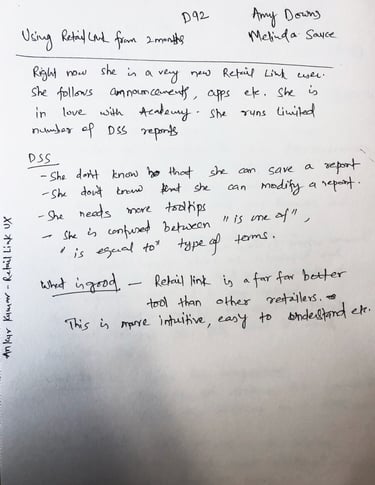 D92
Amy Downs
Melinda Sauce
Using Retail Link from 2 months
Right now she is a very new Retail Link user.
She follows announcements, apps etc. She is
in love with Academy. She runs limited
number of DSS reports
DSS
- She don't know that she can save a report
- She don't know that she can modify a report.
- She needs more tooltips
- She is confused between "is one of",
"is equal to" type of terms.
What is good - Retail link is a far far better
tool than other retailers.
This is more intuitive, easy to understand etc.
Ankur Kumar - Retail Link UX